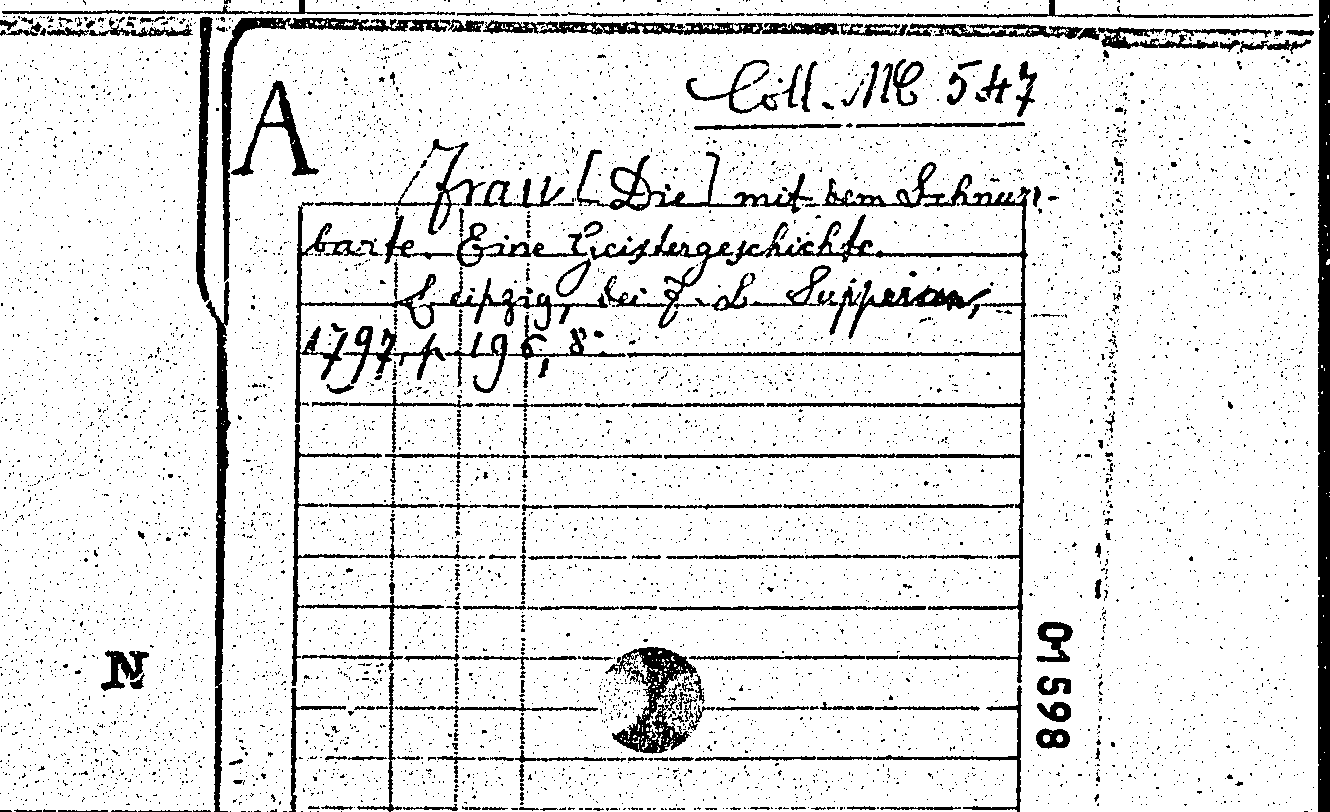 Coll. MC 547
A
Frau [Die] mit dem Schnurr-
barte. Eine Geistergeschichte.
Leipzig, bei J. B. Supprian,
1797, p. 196, 8°
N
01598